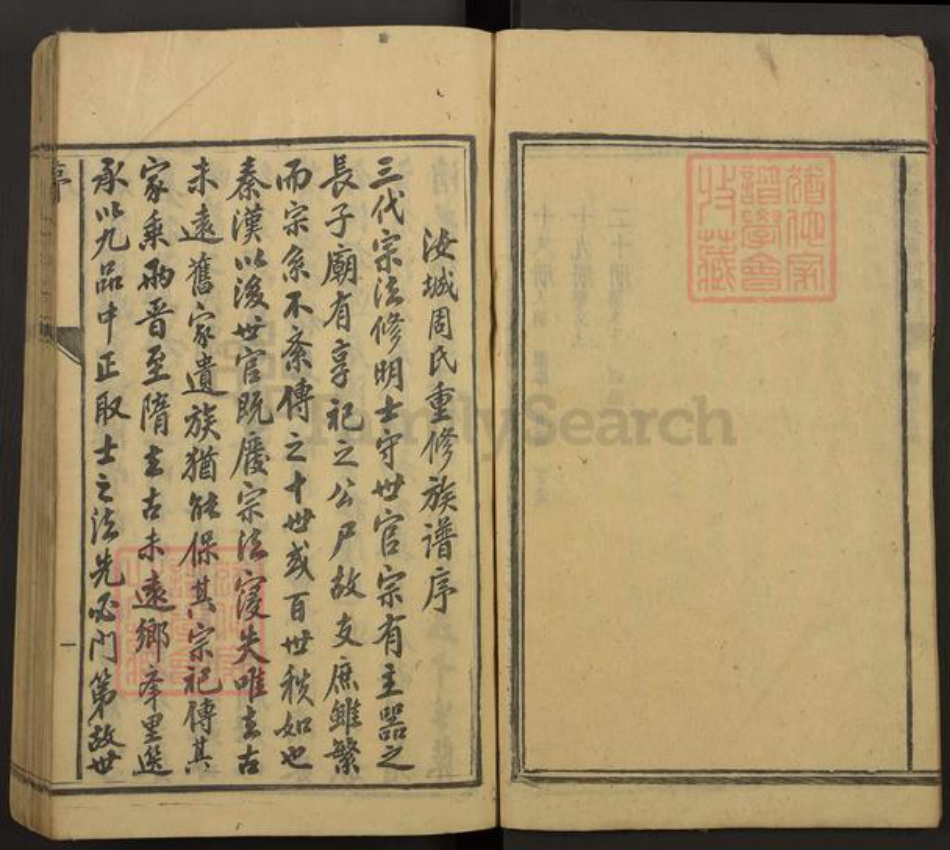 汝城周氏重修族谱序
三代宗法修明士守世官宗有主器之
長子廟有享祀之公尸故支庶雖繁
而宗系不紊傳之十世或百世秩如也
秦漢以後世官既廢宗法寖失唯去古
未遠舊家遺族猶能保其宗祀傳其
家乘兩晋至隋去古未遠鄉舉里選
承以九品中正取士之法先必門第故世
序
一
猶他家
譜學會
收藏
FamilySearch